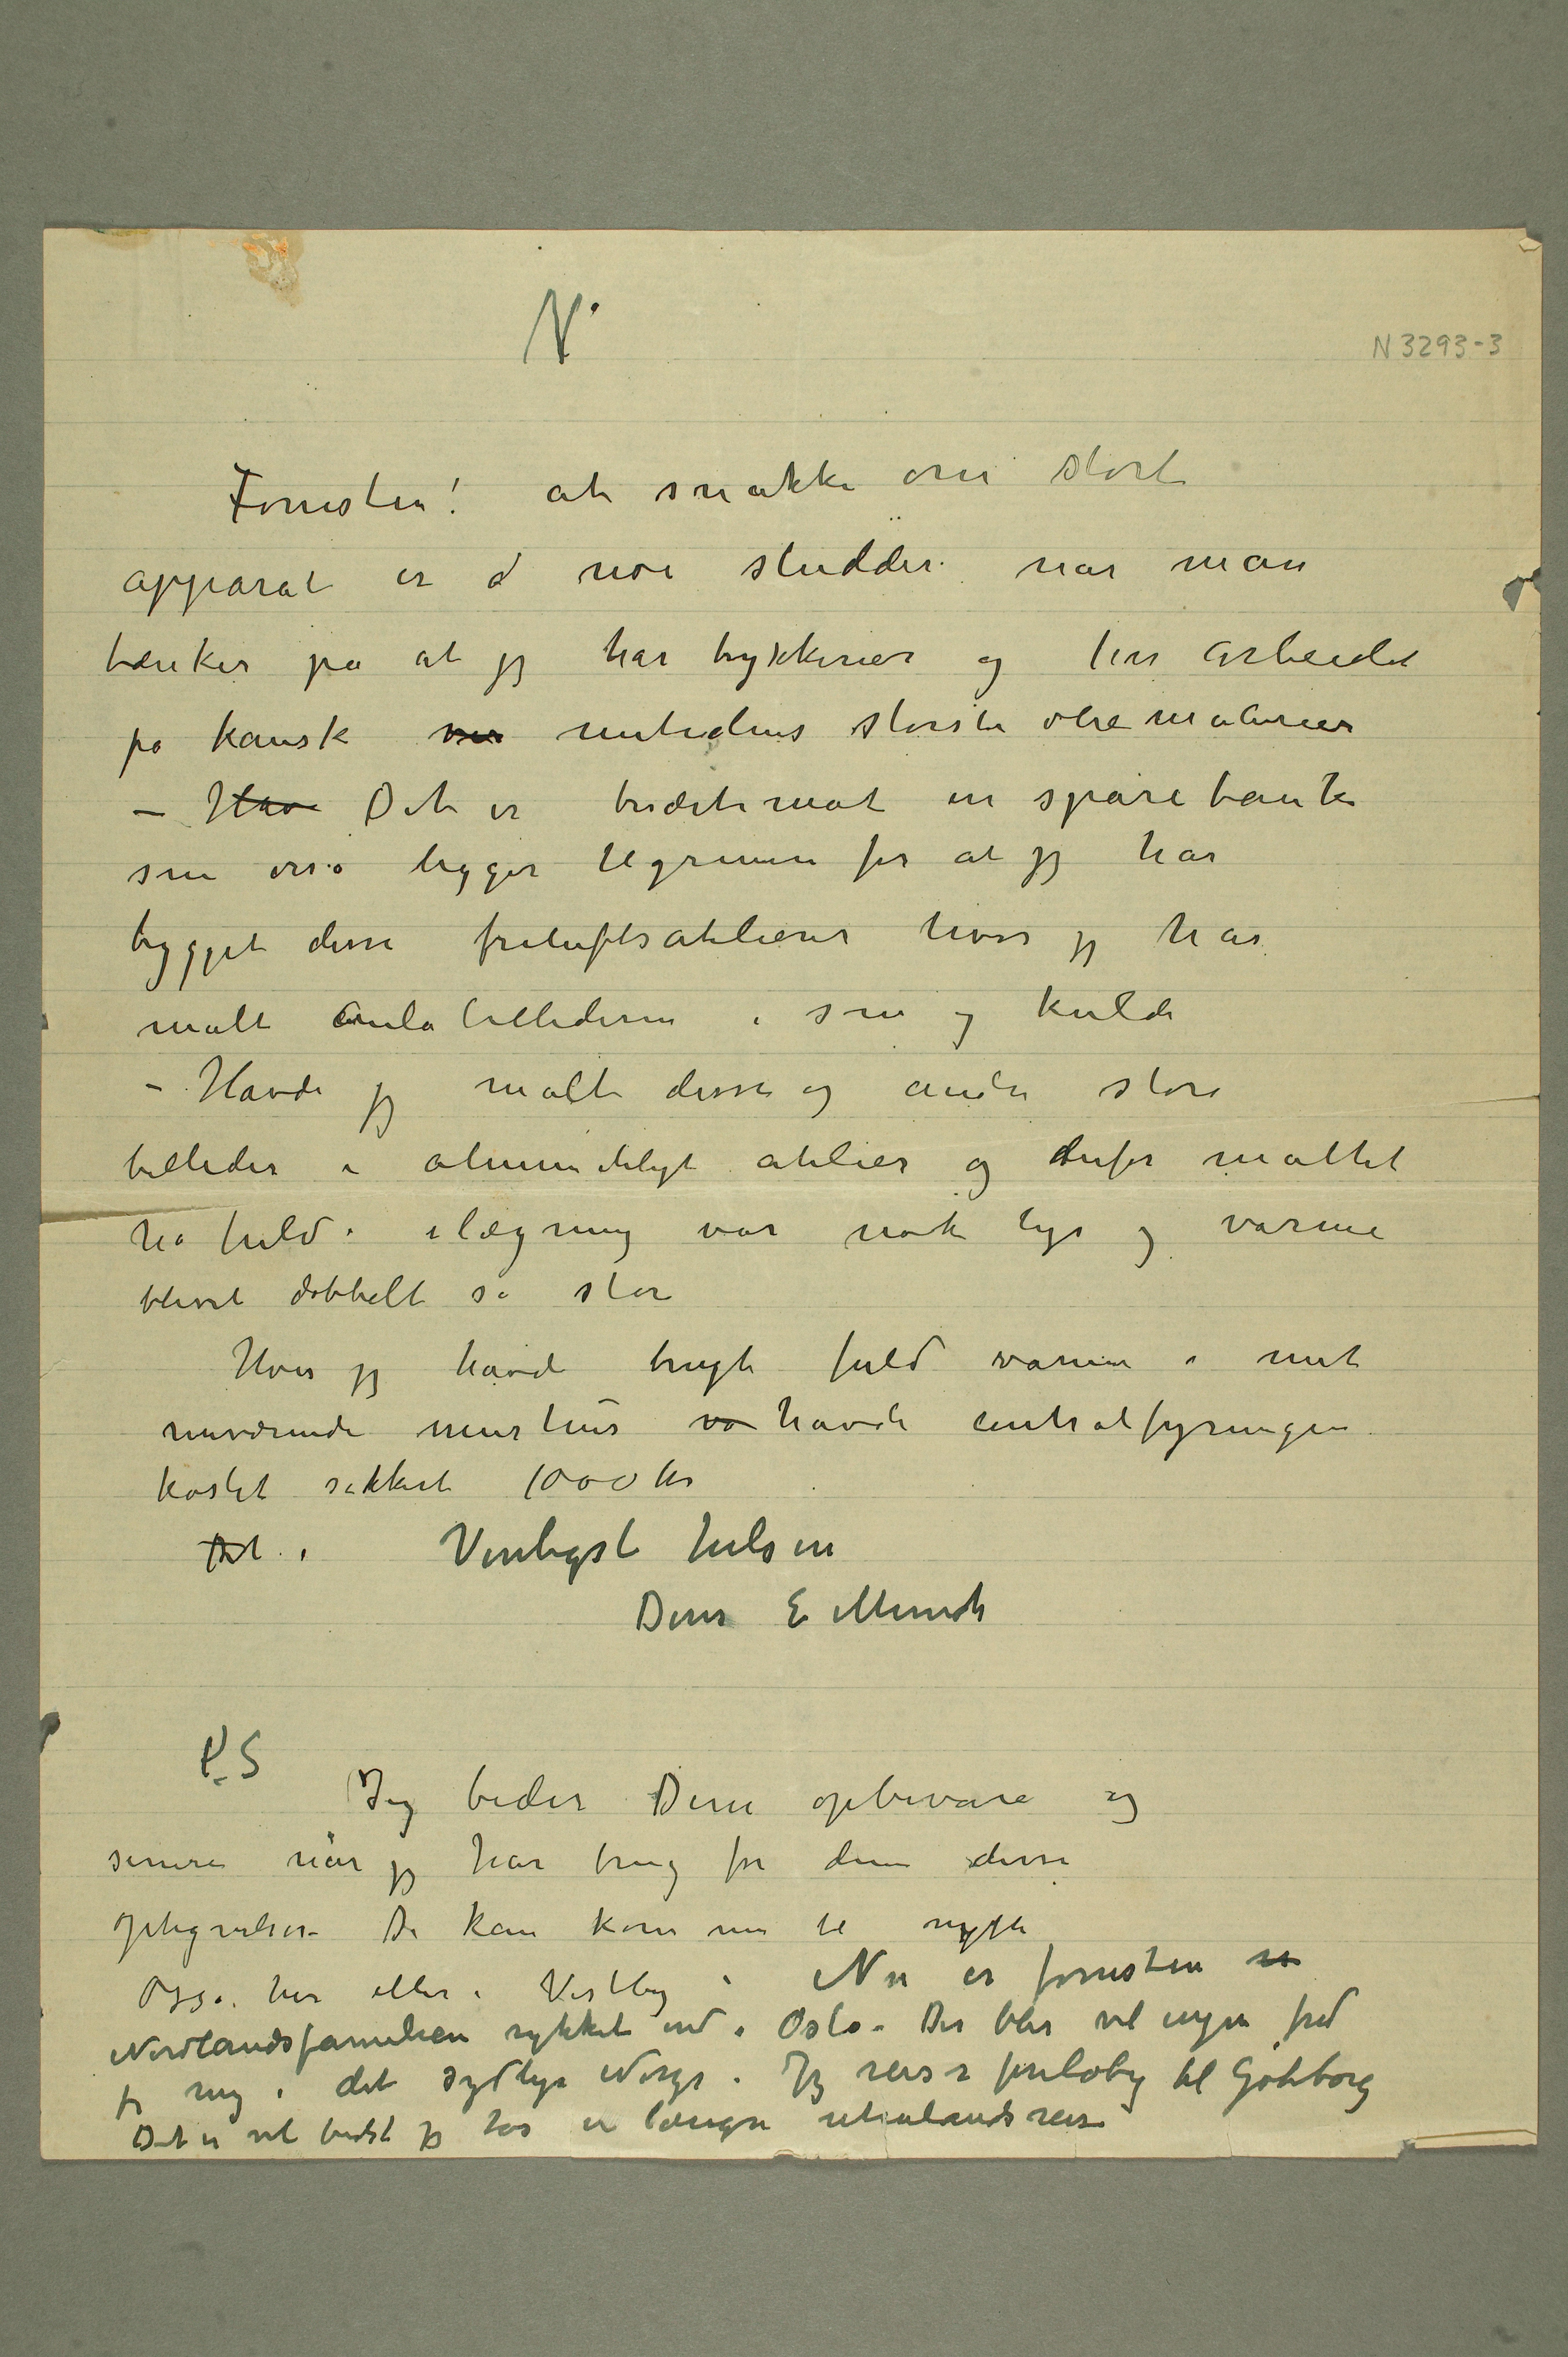 N
N 3293-3
Forresten! at snakke om stort
apparat er d noe sludder når man
tænker på at jeg har trykkerier og har arbeidet
på kanske nutidens største oliemalerier
– Hav Det er tværtimot en sparetanke
som også ligger tilgrunn for at jeg har
bygget disse friluftsatelierer hvor jeg har
malt Aulabillederne i sne og kulde
– Havde jeg malt disse og andre store
billeder i almindeligt atelier og derfor måttet
ha fuld ilægning var nok lys og varme
blevet dobbelt så stor
Hvis jeg havde brugt fuld varme i mit
nuværende murhus va havde centralfyringen
kostet sikkert 1000 kr
Det i Venligst hilsen
Deres E Munch
PS
Jeg beder Dem opbevare og
senere når jeg har brug for dem disse
optegnelser – De kan komme til nytte
Også her eller i Vestby – Nu er forresten
Nordlandsfamilien rykket ind i Oslo – Der blir vel ingen fred
for mig i det sydlige Norge. Jeg reiser foreløbig til Göteborg
Det er vel bedst jeg tar en længre utenlandsreise